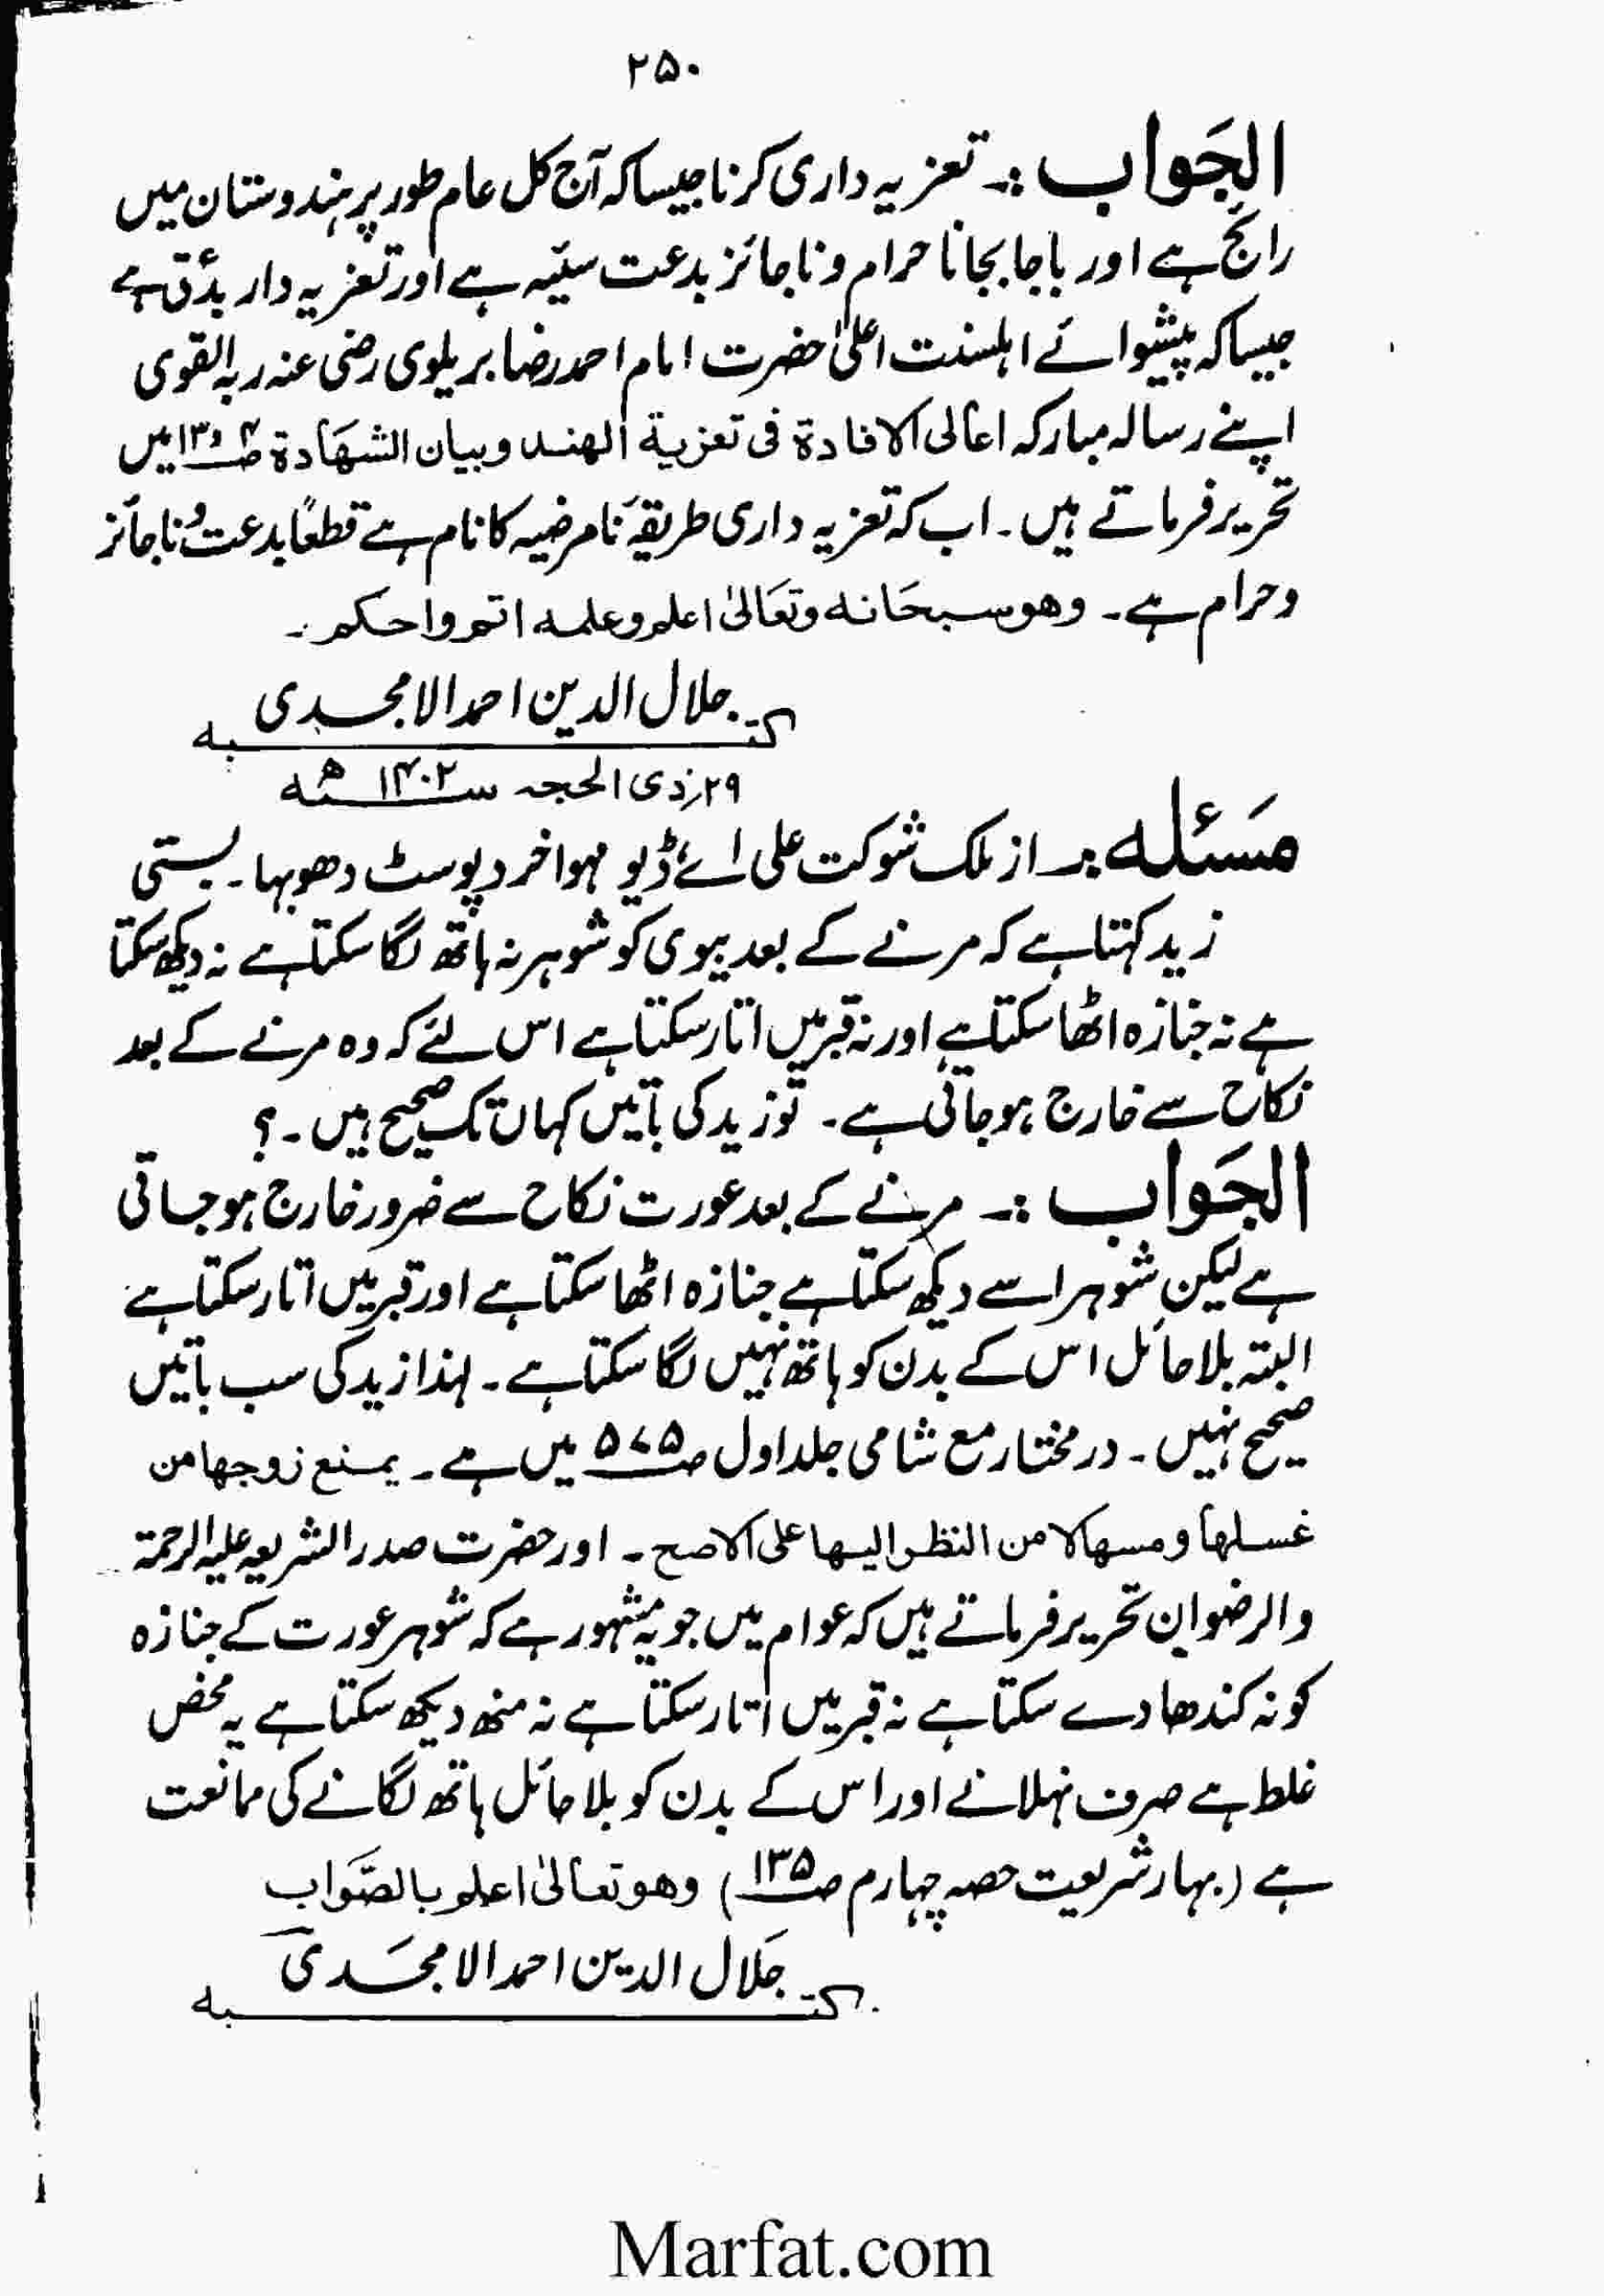 ۲۵۰
الجَواب :۔ تعزیہ داری کرنا جیسا کہ آج کل عام طور پر ہندوستان میں
رائج ہے اور باجا بجانا حرام و ناجائز بدعت سیئہ ہے اور تعزیہ دار بدعتی ہے
جیسا کہ پیشوائے اہلسنت اعلیٰ حضرت امام احمد رضا بریلوی رضی عنہ ربہ القوی
اپنے رسالہ مبارکہ اعالی الافادۃ فی تعزیۃ الہند وبیان الشہَادۃ میں
تحریر فرماتے ہیں ۔ اب کہ تعزیہ داری طریقۂ نامرضیہ کا نام ہے قطعاً بدعت و ناجائز
و حرام ہے ۔ وھو سبحَانہ وتعَالیٰ اعلم وعلمہ اتم واحکم ۔
کتبہ جلال الدین احمد الامجدی
۲۹؍ ذی الحجہ سنہ ۱۴۰۲ھ
مَسئلہ :۔ از ملک شوکت علی اے ڈیو مہوا خرد پوسٹ دھوبہا ۔ بستی
زید کہتا ہے کہ مرنے کے بعد بیوی کو شوہر نہ ہاتھ لگا سکتا ہے نہ دیکھ سکتا
ہے نہ جنازہ اٹھا سکتا ہے اور نہ قبر میں اتار سکتا ہے اس لئے کہ وہ مرنے کے بعد
نکاح سے خارج ہو جاتی ہے ۔ تو زید کی باتیں کہاں تک صحیح ہیں ۔ ؟
الجَواب :۔ مرنے کے بعد عورت نکاح سے ضرور خارج ہو جاتی
ہے لیکن شوہر اسے دیکھ سکتا ہے جنازہ اٹھا سکتا ہے اور قبر میں اتار سکتا ہے
البتہ بلا حائل اس کے بدن کو ہاتھ نہیں لگا سکتا ہے ۔ لہٰذا زید کی سب باتیں
صحیح نہیں ۔ درمختار مع شامی جلد اول صـ ۵۷۵ میں ہے ۔ یمنع زوجھا من
غسلھا و مسھا لا من النظر الیھا علی الاصح ۔ اور حضرت صدر الشریعہ علیہ الرحمۃ
والرضوان تحریر فرماتے ہیں کہ عوام میں جو یہ مشہور ہے کہ شوہر عورت کے جنازہ
کو نہ کندھا دے سکتا ہے نہ قبر میں اتار سکتا ہے نہ منھ دیکھ سکتا ہے یہ محض
غلط ہے صرف نہلانے اور اس کے بدن کو بلا حائل ہاتھ لگانے کی ممانعت
ہے (بہار شریعت حصہ چہارم صـ ۱۳۵) وھو تعالیٰ اعلم بالصَّوَاب
کتبہ جَلال الدین احمد الامجَدی
Marfat.com